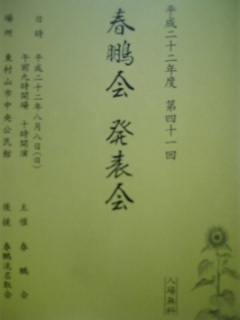 平成二十二年度 第四十一回
春鵬会 発表会
日時 平成二十二年八月八日(日)
午前九時開場 十時開演
場所 東村山市中央公民館
主催 春鵬会
後援 春鵬流名取会
入場無料